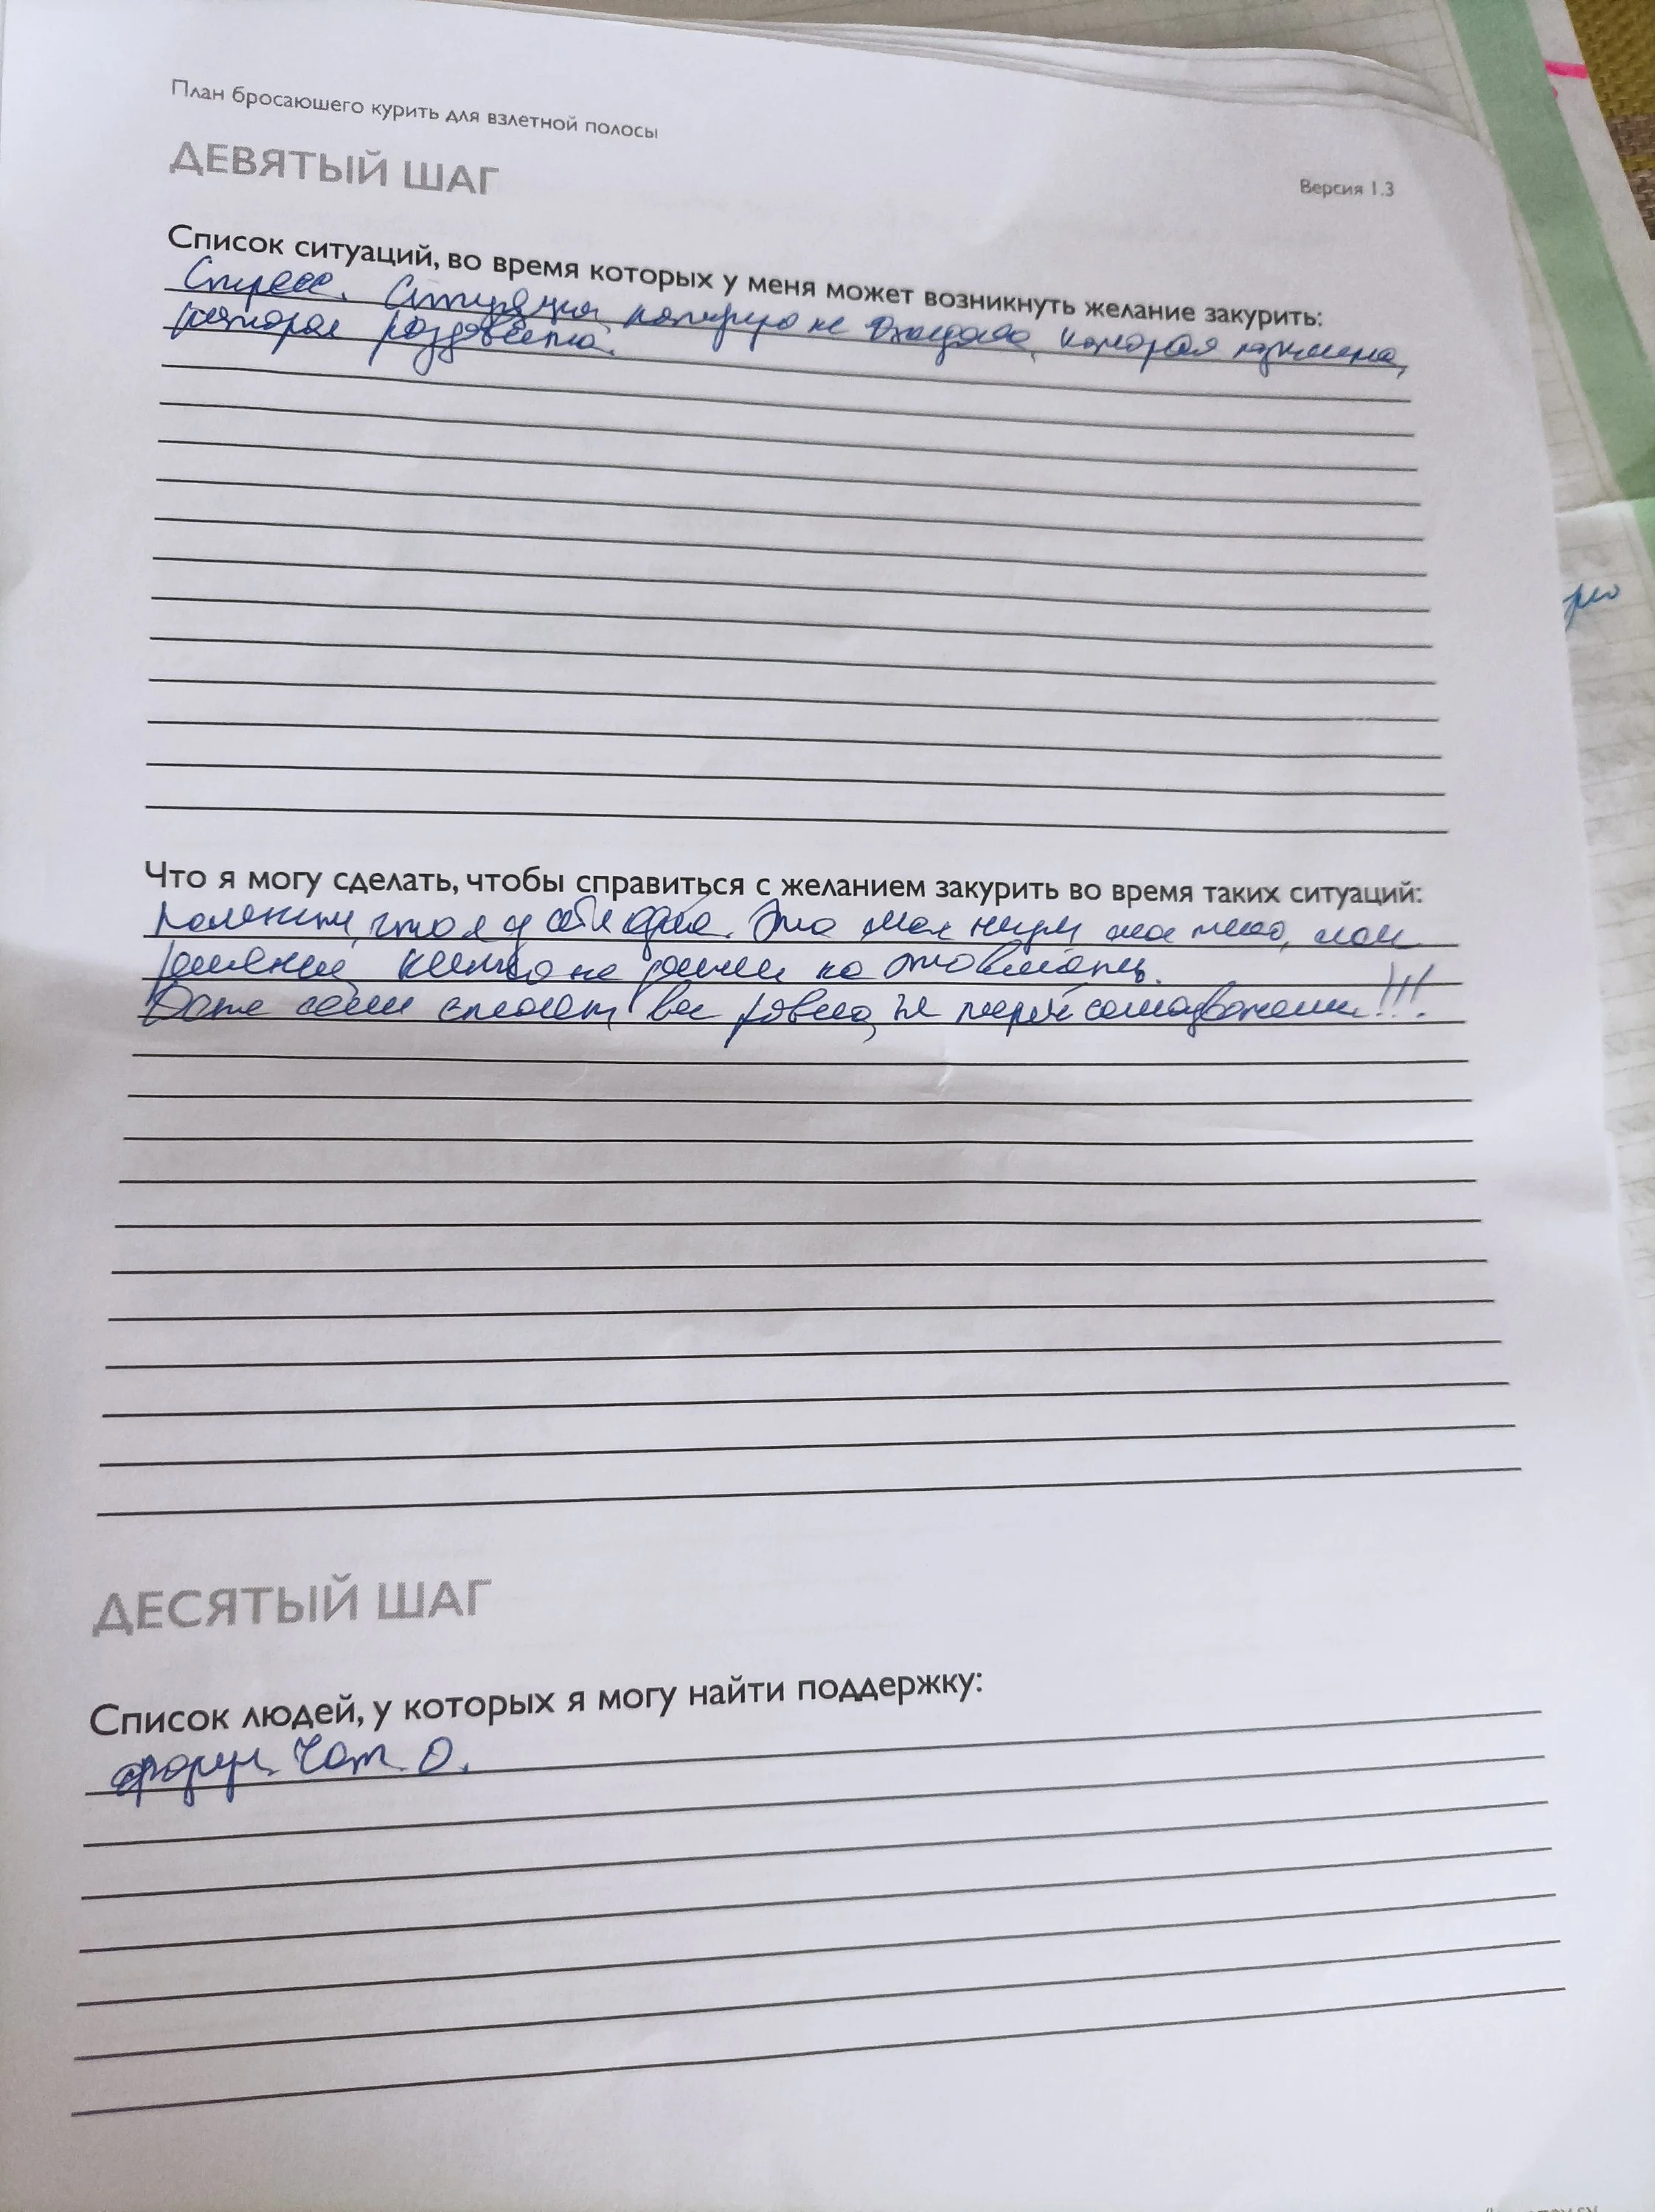 План бросаюшего курить для взлетной полосы
ДЕВЯТЫЙ ШАГ
Версия 1.3
Список ситуаций, во время которых у меня может возникнуть желание закурить:
Стресс. Ситуация которую не ожидала, которая
которая раздавлена.
Что я могу сделать, чтобы справиться с желанием закурить во время таких ситуаций:
что я у себя одна. Это моя
никто не
Даже если спасает, все равно, не теряй самообладание!!!
ДЕСЯТЫЙ ШАГ
Список людей, у которых я могу найти поддержку:
форум. Чат. О.
рю